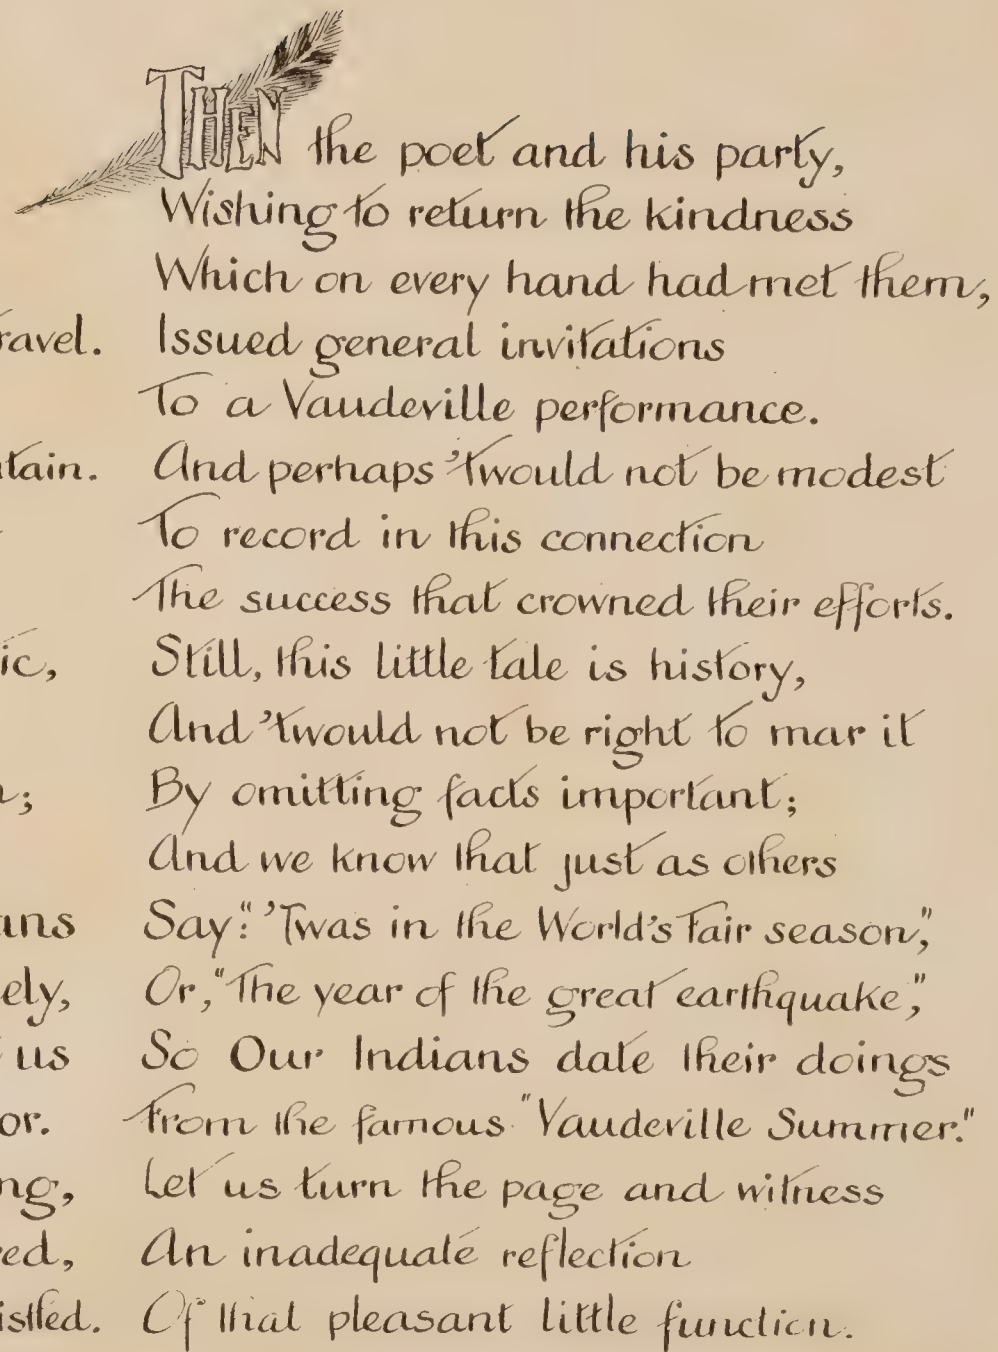 THEN the poet and his party,
Wishing to return the kindness
Which on every hand had met them,
Issued general invitations
To a Vaudeville performance.
And perhaps 'twould not be modest
To record in this connection
The success that crowned their efforts.
Still, this little tale is history,
And 'twould not be right to mar it
By omitting facts important;
And we know that just as others
Say:" 'Twas in the World's Fair season,"
Or, "The year of the great earthquake,"
So Our Indians date their doings
From the famous "Vaudeville Summer."
Let us turn the page and witness
An inadequate reflection
Of that pleasant little function.